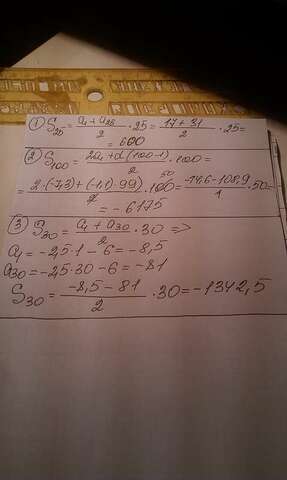 ① S₂₅ = (a₁ + a₂₅)/2 · 25 = (17 + 31)/2 · 25 =
= 600
② S₁₀₀ = (2a₁ + d(100-1))/2 · 100 =
= (2·(-7,3) + (-1,1)·99)/2 · 100 50 = (-14,6 - 108,9)/1 · 50 =
= -6175
③ S₃₀ = (a₁ + a₃₀)/2 · 30 =>
a₁ = -2,5·1 - 6 = -8,5
a₃₀ = -2,5·30 - 6 = -81
S₃₀ = (-8,5 - 81)/2 · 30 = -1342,5